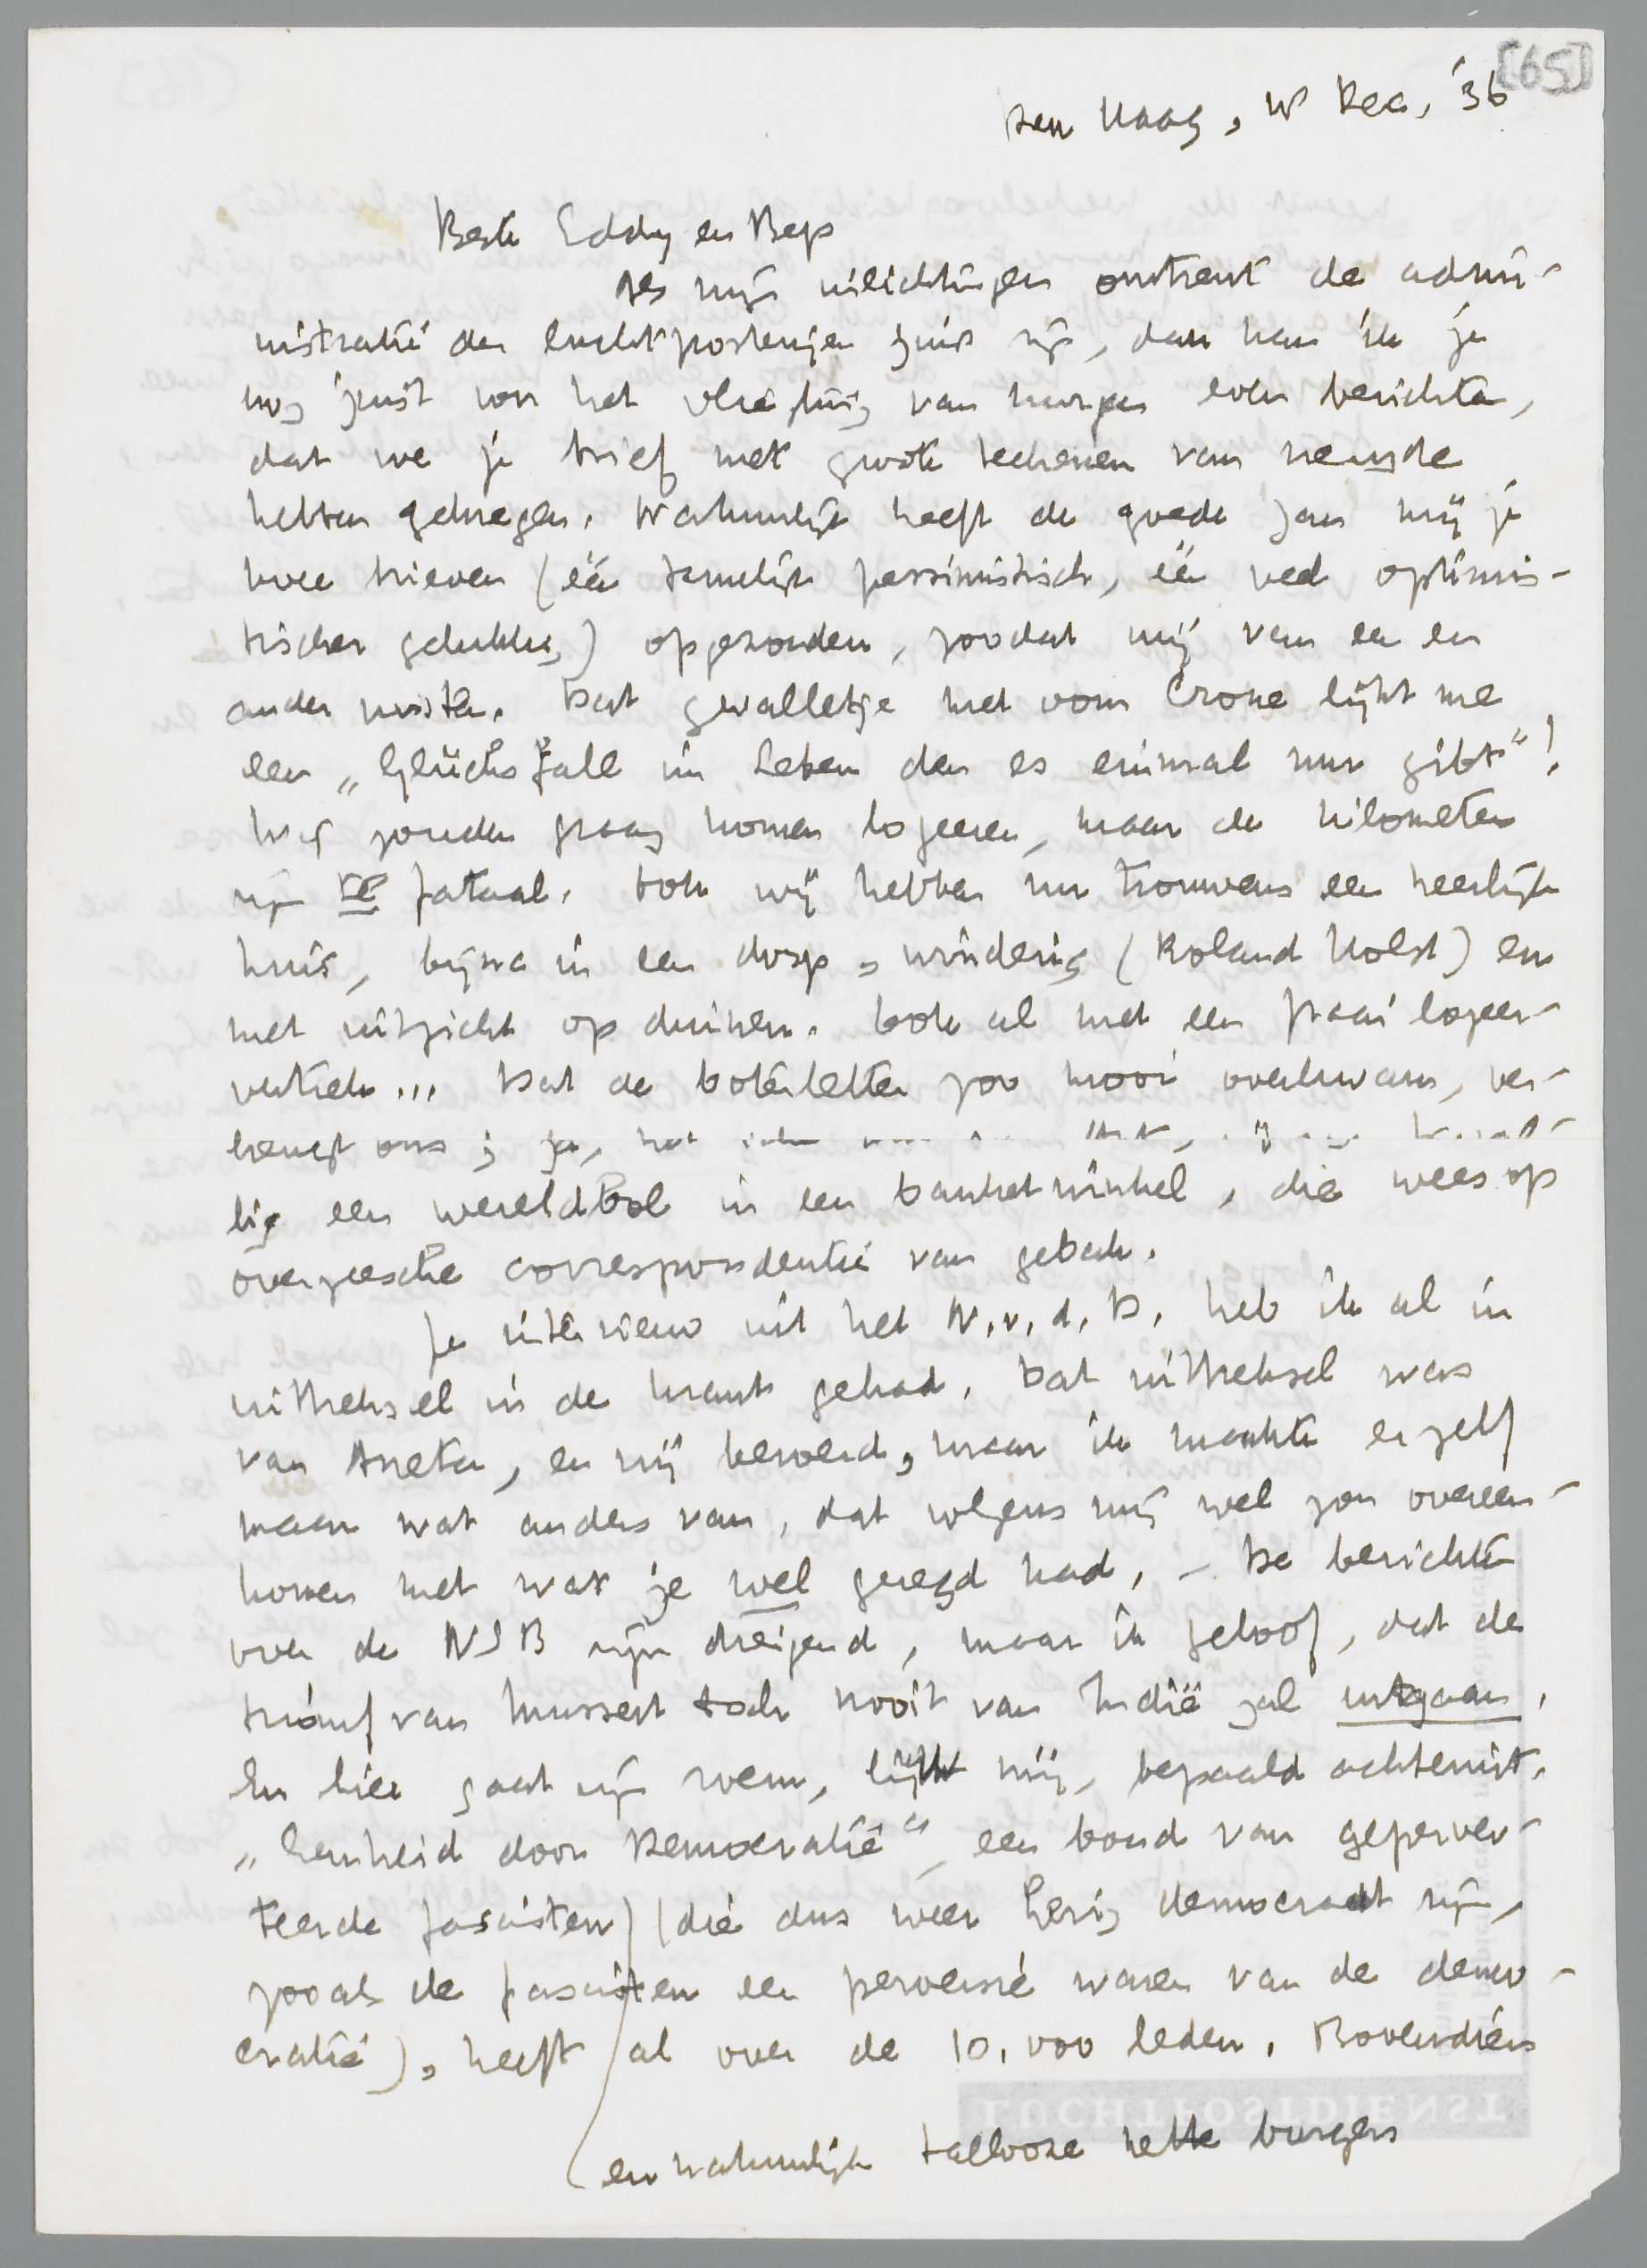 [65]
Den Haag, 10 Dec. '36
Beste Eddy en Beps
Als mijn inlichtingen omtrent de admi-
nistratie der luchtposterijen juist zijn, dan kan ik je
nog juist voor het vliegtuig van morgen even berichten,
dat we je brief met groote teekenen van vreugde
hebben gekregen. Natuurlijk heeft de goede Jan mij je
twee brieven (één tamelijk pessimistisch, één veel optimis-
tischer gelukkig) opgezonden, zoodat wij van een en
ander wisten. Dat gevalletje met vom Crone lijkt me
een „Glücksfall im Leben den es einmal nur gibt"!
Wij zouden graag komen logeeren, maar de kilometers
zijn te fataal. Ook wij hebben nu trouwens een heerlijk
huis, bijna in een dorp, winderig (Roland Holst) en
met uitzicht op duinen. Ook al met een fraai logeer-
vertrek... Dat de boterletter zoo mooi overkwam, ver-
heugt ons; ja, het
lig een wereldbol in een banketwinkel, die wees op
overzeesche correspondentie van gebak.
Je interview uit het N.v.d.D. heb ik al in
uittreksel in de krant gehad. Dat uittreksel was
van Aneta, en zij beweerd, maar ik maakte er zelf
maar wat anders van, dat volgens mij wel zou overeen-
komen met wat je wel gezegd had. – De berichten
over de NSB zijn dreigend, maar ik geloof, dat de
triomf van Mussert toch nooit van Indië zal uitgaan.
En hier gaat zijn zwam, lijkt mij, bepaald achteruit.
„Eenheid door Democratie", een bond van geperver-
teerde fascisten) (die dus weer hevig democraat zijn,
zooals de fascisten een perversie waren van de demo-
cratie), heeft al over de 10.000 leden. Bovendien
en natuurlijk tallooze nette burgers
LUCHTPOSTDIENST